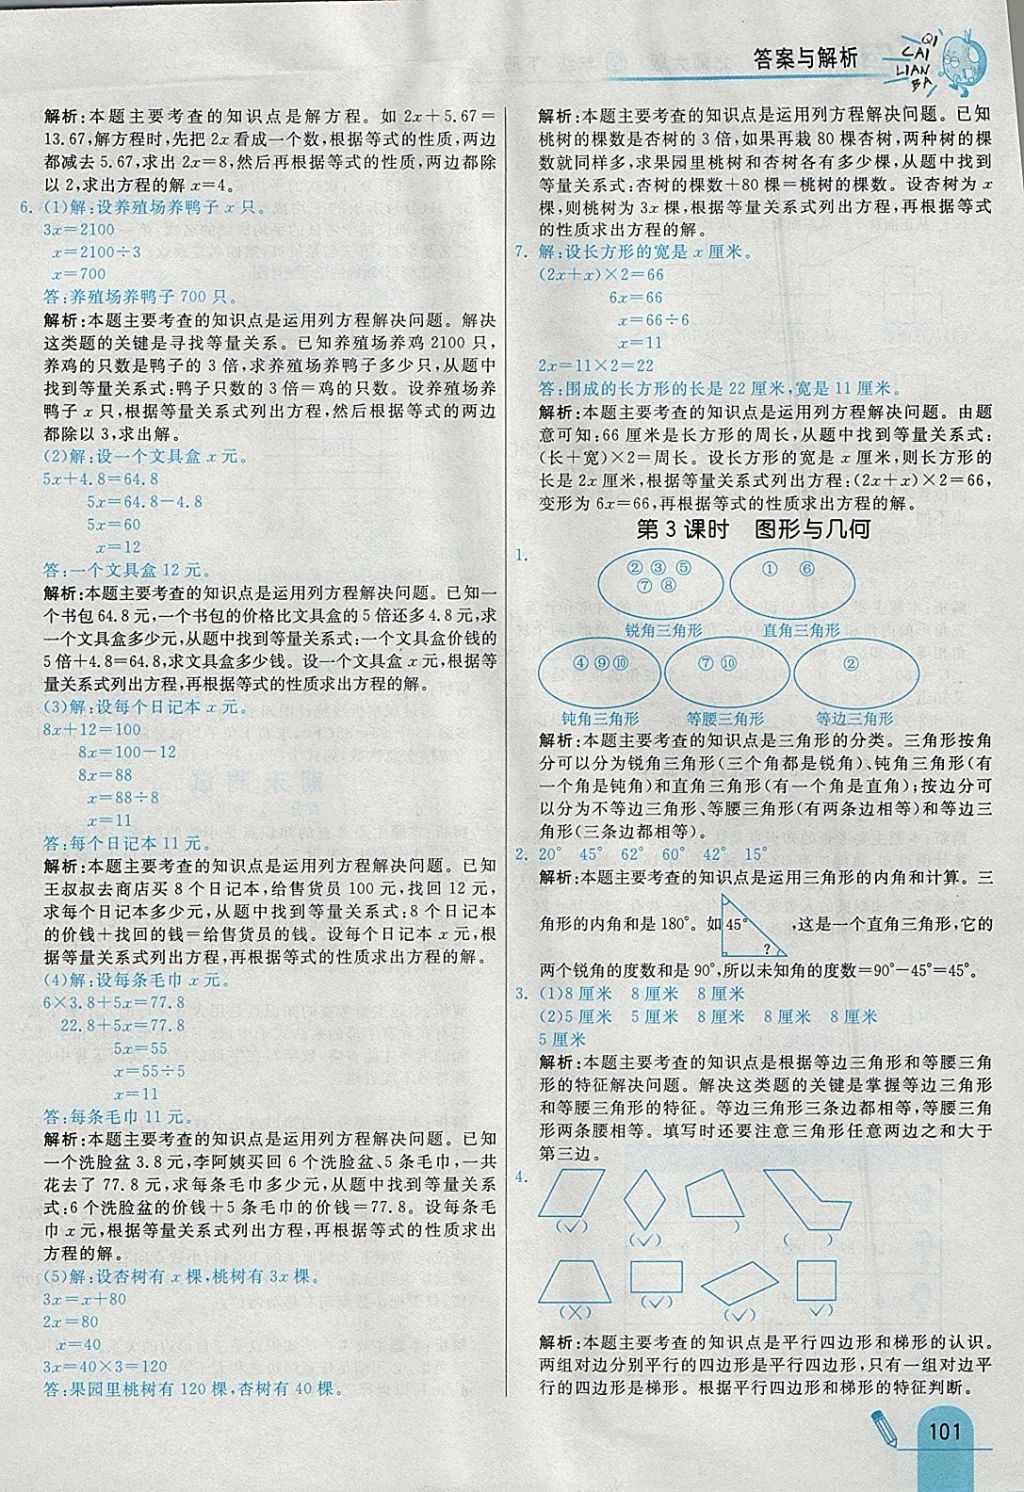 答案与解析
QI
CAI
LIAN
BA
解析:本题主要考查的知识点是解方程。如 2x+5.67=
13.67,解方程时,先把 2x 看成一个数,根据等式的性质,两边
都减去 5.67,求出 2x=8,然后再根据等式的性质,两边都除
以 2,求出方程的解 x=4。
6. (1)解:设养殖场养鸭子 x 只。
3x=2100
x=2100÷3
x=700
答:养殖场养鸭子 700 只。
解析:本题主要考查的知识点是运用列方程解决问题。解决
这类题的关键是寻找等量关系。已知养殖场养鸡 2100 只,
养鸡的只数是鸭子的 3 倍,求养殖场养鸭子多少只,从题中
找到等量关系式:鸭子只数的 3 倍=鸡的只数。设养殖场养
鸭子 x 只,根据等量关系式列出方程,然后根据等式的两边
都除以 3,求出解。
(2)解:设一个文具盒 x 元。
5x+4.8=64.8
5x=64.8-4.8
5x=60
x=12
答:一个文具盒 12 元。
解析:本题主要考查的知识点是运用列方程解决问题。已知一
个书包 64.8 元,一个书包的价格比文具盒的 5 倍还多 4.8 元,求
一个文具盒多少元,从题中找到等量关系式:一个文具盒价钱的
5 倍+4.8=64.8,求文具盒多少钱。设一个文具盒 x 元,根据等
量关系式列出方程,再根据等式的性质求出方程的解。
(3)解:设每个日记本 x 元。
8x+12=100
8x=100-12
8x=88
x=88÷8
x=11
答:每个日记本 11 元。
解析:本题主要考查的知识点是运用列方程解决问题。已知
王叔叔去商店买 8 个日记本,给售货员 100 元,找回 12 元,
求每个日记本多少元,从题中找到等量关系式:8 个日记本
的价钱+找回的钱=给售货员的钱。设每个日记本 x 元,根
据等量关系式列出方程,再根据等式的性质求出方程的解。
(4)解:设每条毛巾 x 元。
6×3.8+5x=77.8
22.8+5x=77.8
5x=55
x=55÷5
x=11
答:每条毛巾 11 元。
解析:本题主要考查的知识点是运用列方程解决问题。已知
一个洗脸盆 3.8 元,李阿姨买回 6 个洗脸盆、5 条毛巾,一共
花去了 77.8 元,求每条毛巾多少元,从题中找到等量关系
式:6 个洗脸盆的价钱+5 条毛巾的价钱=77.8。设每条毛
巾 x 元,根据等量关系式列出方程,再根据等式的性质求出
方程的解。
(5)解:设杏树有 x 棵,桃树有 3x 棵。
3x=x+80
2x=80
x=40
3x=40×3=120
答:果园里桃树有 120 棵,杏树有 40 棵。
解析:本题主要考查的知识点是运用列方程解决问题。已知
桃树的棵数是杏树的 3 倍,如果再栽 80 棵杏树,两种树的棵
数就同样多,求果园里桃树和杏树各有多少棵,从题中找到
等量关系式:杏树的棵数+80 棵=桃树的棵数。设杏树为 x
棵,则桃树为 3x 棵,根据等量关系式列出方程,再根据等式
的性质求出方程的解。
7. 解:设长方形的宽是 x 厘米。
(2x+x)×2=66
6x=66
x=66÷6
x=11
2x=11×2=22
答:围成的长方形的长是 22 厘米,宽是 11 厘米。
解析:本题主要考查的知识点是运用列方程解决问题。由题
意可知:66 厘米是长方形的周长,从题中找到等量关系式:
(长+宽)×2=周长。设长方形的宽是 x 厘米,则长方形的
长是 2x 厘米,根据等量关系式列出方程:(2x+x)×2=66,
变形为 6x=66,再根据等式的性质求出方程的解。
第 3 课时 图形与几何
1.
② ③ ⑤
⑦ ⑧
① ⑥
锐角三角形 直角三角形
④⑨⑩ ⑦⑩ ②
钝角三角形 等腰三角形 等边三角形
解析:本题主要考查的知识点是三角形的分类。三角形按角
分可以分为锐角三角形(三个角都是锐角)、钝角三角形(有
一个角是钝角)和直角三角形(有一个角是直角);按边分可
以分为不等边三角形、等腰三角形(有两条边相等)和等边三
角形(三条边都相等)。
2. 20° 45° 62° 60° 42° 15°
解析:本题主要考查的知识点是运用三角形的内角和计算。三
角形的内角和是 180°。如 45° ? ,这是一个直角三角形,它的
两个锐角的度数和是 90°,所以未知角的度数=90°-45°=45°。
3. (1)8 厘米 8 厘米 8 厘米
(2)5 厘米 5 厘米 8 厘米 8 厘米 8 厘米
5 厘米
解析:本题主要考查的知识点是根据等边三角形和等腰三角
形的特征解决问题。解决这类题的关键是掌握等边三角形
和等腰三角形的特征。等边三角形三条边都相等,等腰三角
形两条腰相等。填写时还要注意三角形任意两边之和大于
第三边。
4.
(√) (√) ( ) ( )
(×) (√) (√) (√)
解析:本题主要考查的知识点是平行四边形和梯形的认识。
两组对边分别平行的四边形是平行四边形,只有一组对边平
行的四边形是梯形。根据平行四边形和梯形的特征判断。
101